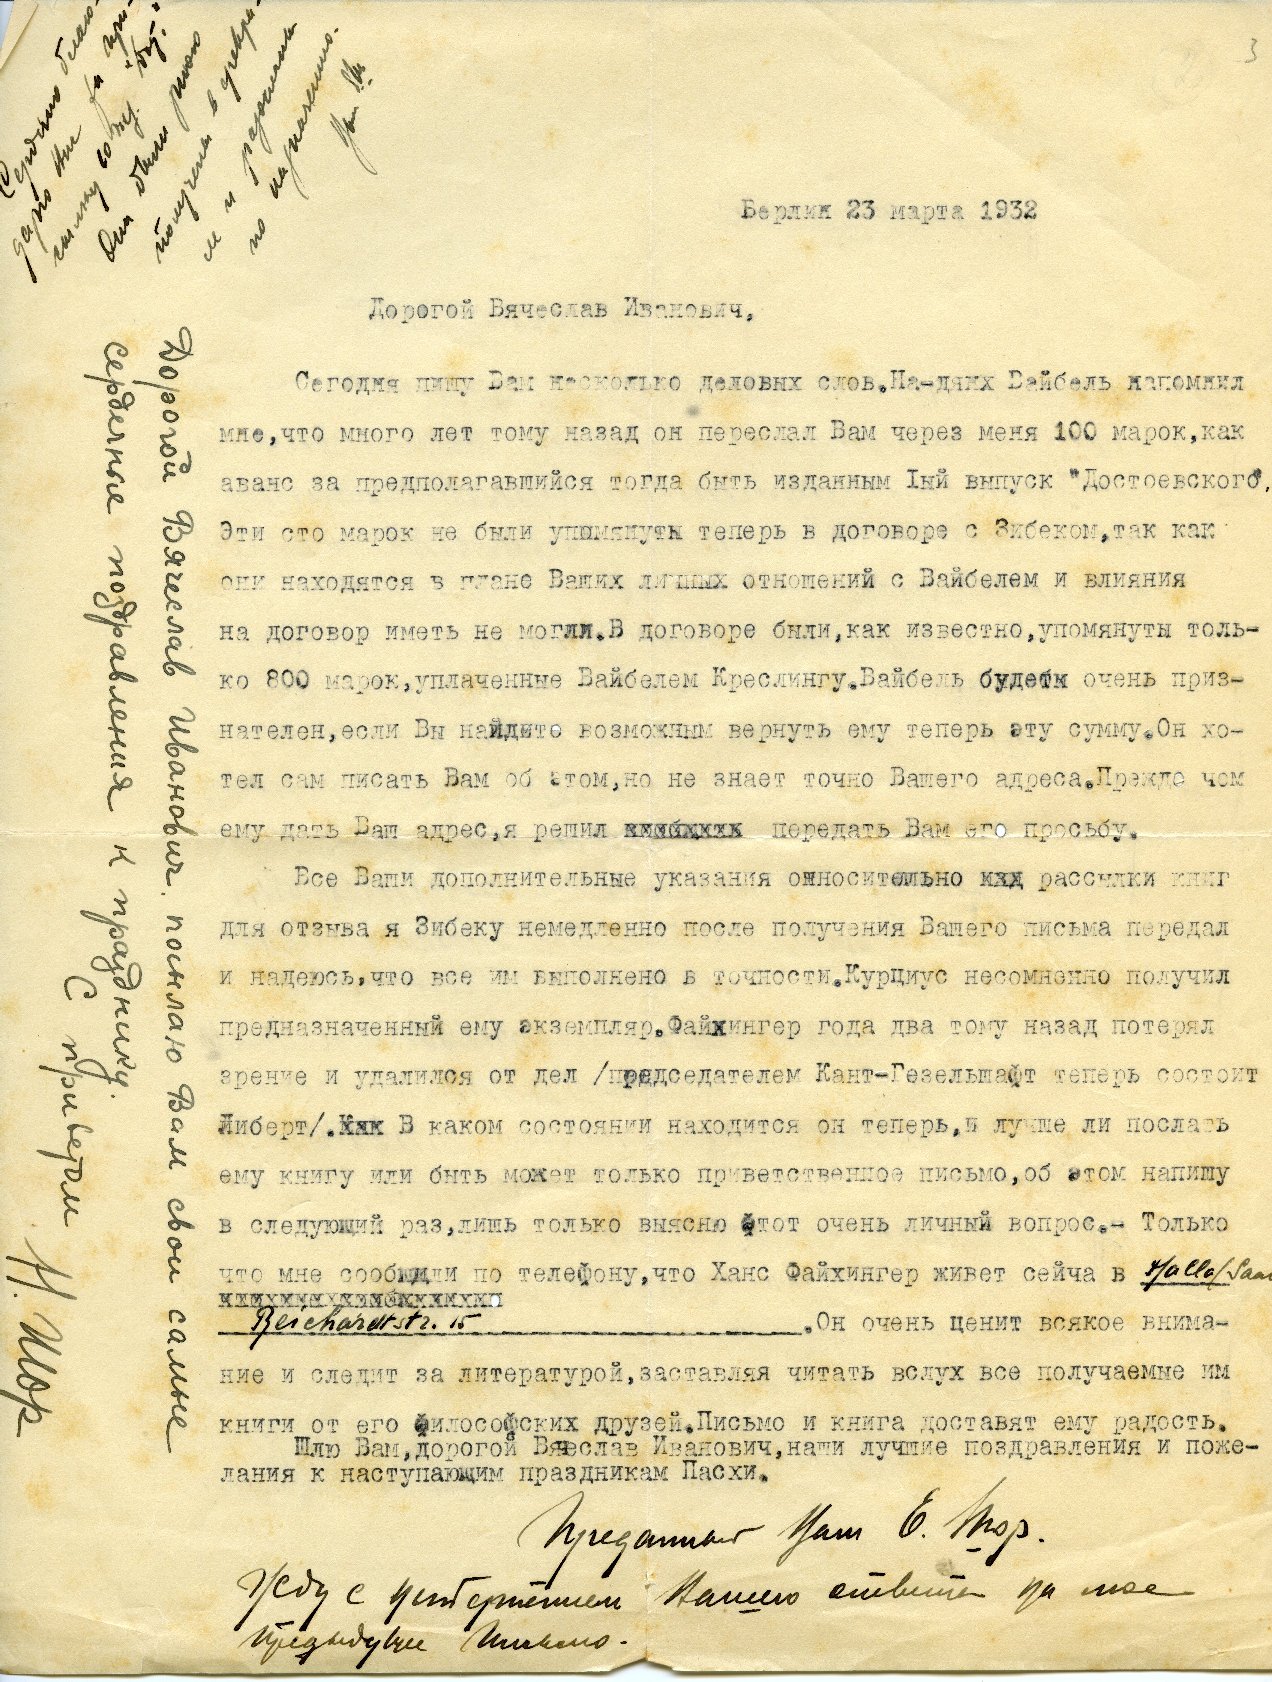 3
Сердечно благо-
дарю Вас за при-
сылку
Она была мною
получена
и
по назначению.
Ваш
Берлин 23 марта 1932
Дорогой Вячеслав Иванович,
Сегодня пишу Вам несколько деловых слов.На-днях Вайбель напомнил
мне,что много лет тому назад он переслал Вам через меня 100 марок,как
аванс за предполагавшийся тогда быть изданным Iый выпуск "Достоевского".
Эти сто марок не были упомянуты теперь в договоре с Зибеком,так как
они находятся в плане Ваших личных отношений с Вайбелем и влияния
на договор иметь не могли.В договоре были,как известно,упомянуты толь-
ко 800 марок,уплаченные Вайбелем Креслингу.Вайбель будет очень приз-
нателен,если Вы найдете возможным вернуть ему теперь эту сумму.Он хо-
тел сам писать Вам об этом,но не знает точно Вашего адреса.Прежде чем
ему дать Ваш адрес,я решил передать Вам его просьбу.
Все Ваши дополнительные указания относительно рассылки книг
для отзыва я Зибеку немедленно после получения Вашего письма передал
и надеюсь,что все им выполнено в точности.Курциус несомненно получил
предназначенный ему экземпляр.Файхингер года два тому назад потерял
зрение и удалился от дел /председателем Кант-Гезельшафт теперь состоит
Либерт/. В каком состоянии находится он теперь,и лучше ли послать
ему книгу или быть может только приветственное письмо,об этом напишу
в следующий раз,лишь только выясню этот очень личный вопрос.- Только
что мне сообщили по телефону,что Ханс Файхингер живет сейча в Halle/Saale
Reichardtstr. 15 .Он очень ценит всякое внима-
ние и следит за литературой,заставляя читать вслух все получаемые им
книги от его философских друзей.Письмо и книга доставят ему радость.
Шлю Вам,дорогой Вячеслав Иванович,наши лучшие поздравления и поже-
лания к наступающим праздникам Пасхи.
Преданный Ваш Е. Шор.
Жду с нетерпением Вашего ответа на мое
предыдущее письмо.
Дорогой Вячеслав Иванович. посылаю Вам свои самые
сердечные поздравления к празднику.
С приветом
Н. Шор